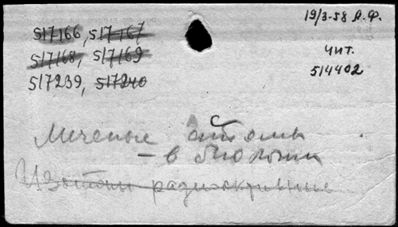 517166, 517167
517168, 517169
517239, 517240
19/3-58 А.Ф.
Чит.
514402
с
Меченые атомы
- в биологии
Изотопы радиоактивные